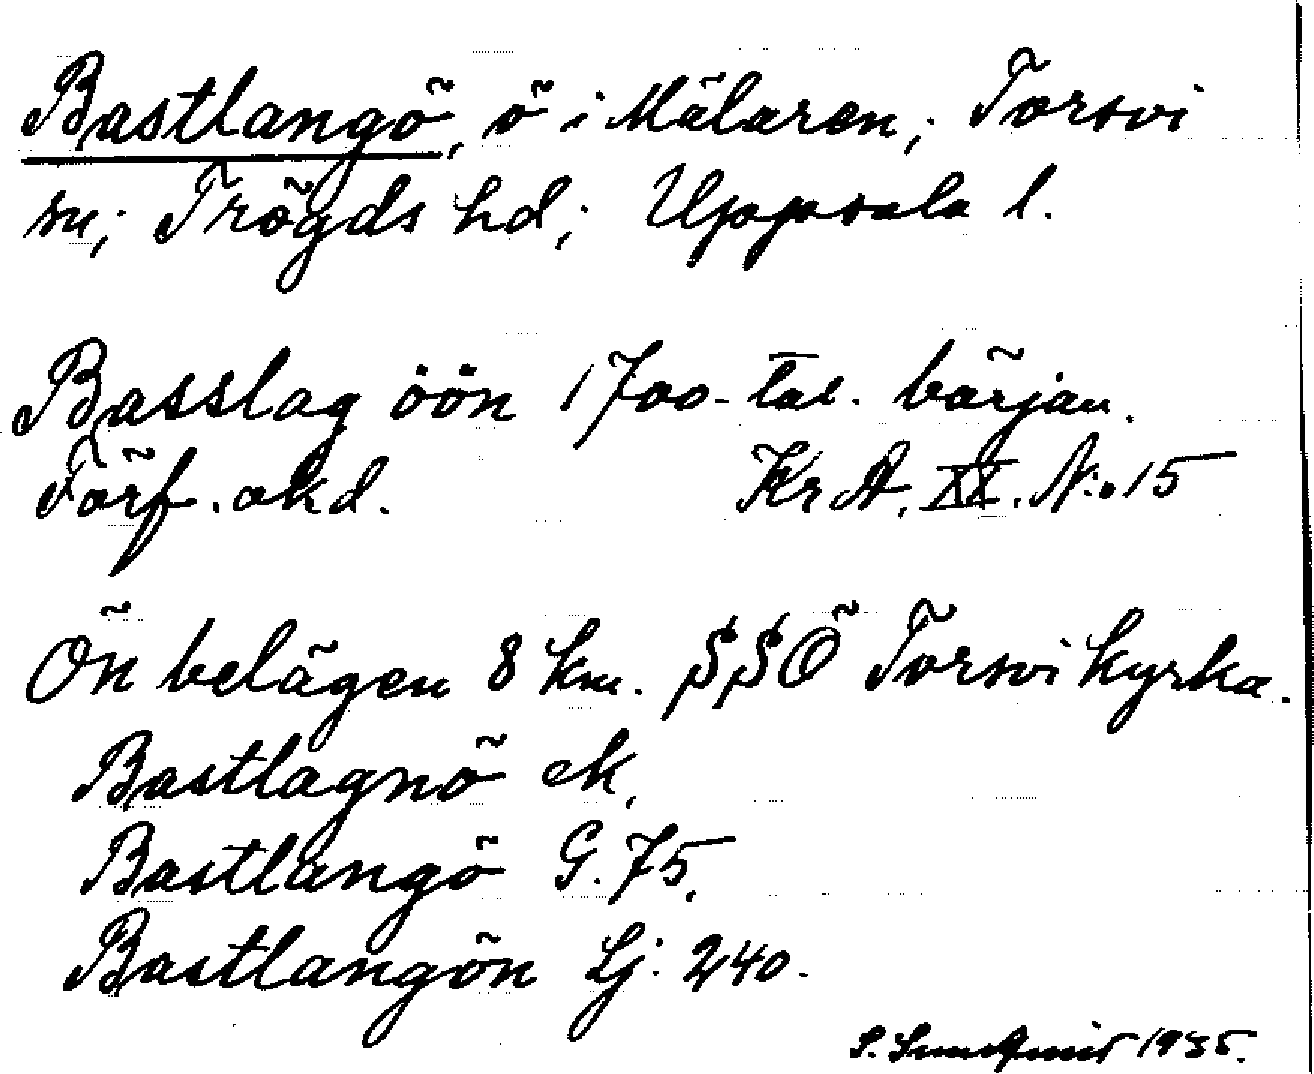 Bastlangö, ö i Mälaren; Torsvi
sn; Trögds hd; Uppsala l.
Basslag öön 1700-tal. början.
Förf. okd. Kr A. XX. N:o 15
Ön belägen 8 km. SSÖ Torsvi kyrka.
Bastlagnö ek,
Bastlangö G. 75.
Bastlangön Lj: 240.
S. 1935.